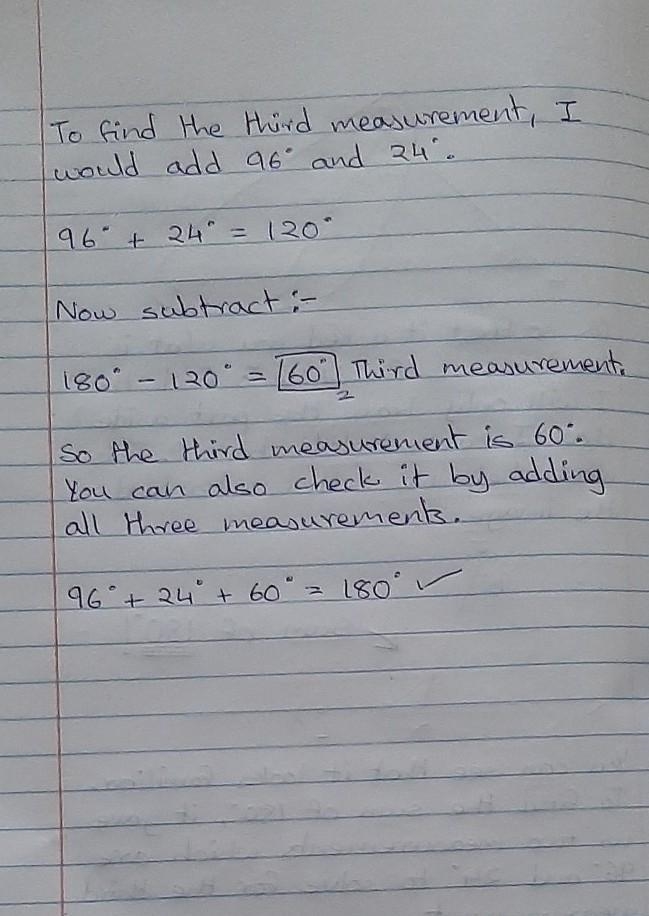 To find the third measurement, I
would add 96° and 24°.
96° + 24° = 120°
Now subtract :-
180° - 120° = 60° Third measurement.
2
So the third measurement is 60°.
You can also check it by adding
all three measurements.
96° + 24° + 60° = 180° ✓